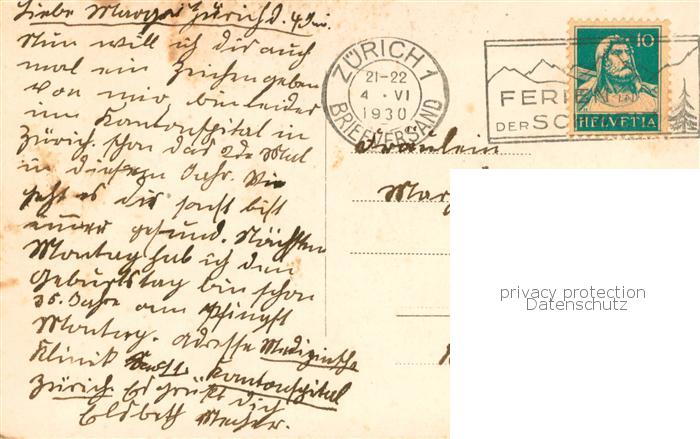 Liebe Margo Zürich d. 4 Juni.
Nun will ich dir auch
mal ein Zeichen geben
von mir, bin leider
im Kantonspital in
Zürich. schon das 2te Mal
in diesem Jahr. Wie
geht es dir sonst bist
immer gesund. Nächsten
Montag hab ich den
Geburtstag bin schon
35. Jahre am Pfingst
Montag. Adresse Medizinische
Klinik Kantonspital
Zürich Es grüßt dich
Elsbeth
ZÜRICH 1
21-22
4. VI
1930
BRIEFVERSAND
FERIEN IN
DER SC
10
HELVETIA
Fräulein
Mar
privacy protection
Datenschutz